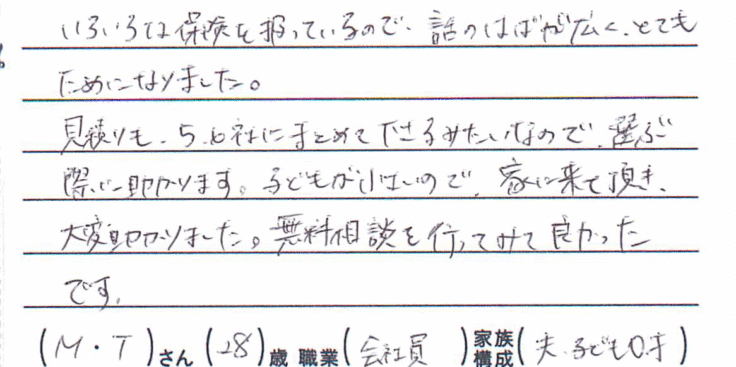 いろいろな保険を扱っているので、話のはばが広く、とても
ためになりました。
見積りも、5、6社にまとめて下さるみたいなので、選ぶ
際に助かります。子どもが小さいので、家に来て頂き、
大変助かりました。無料相談を行ってみて良かった
です。
(M・T)さん (28)歳 職業(会社員)家族構成(夫、子ども0才)